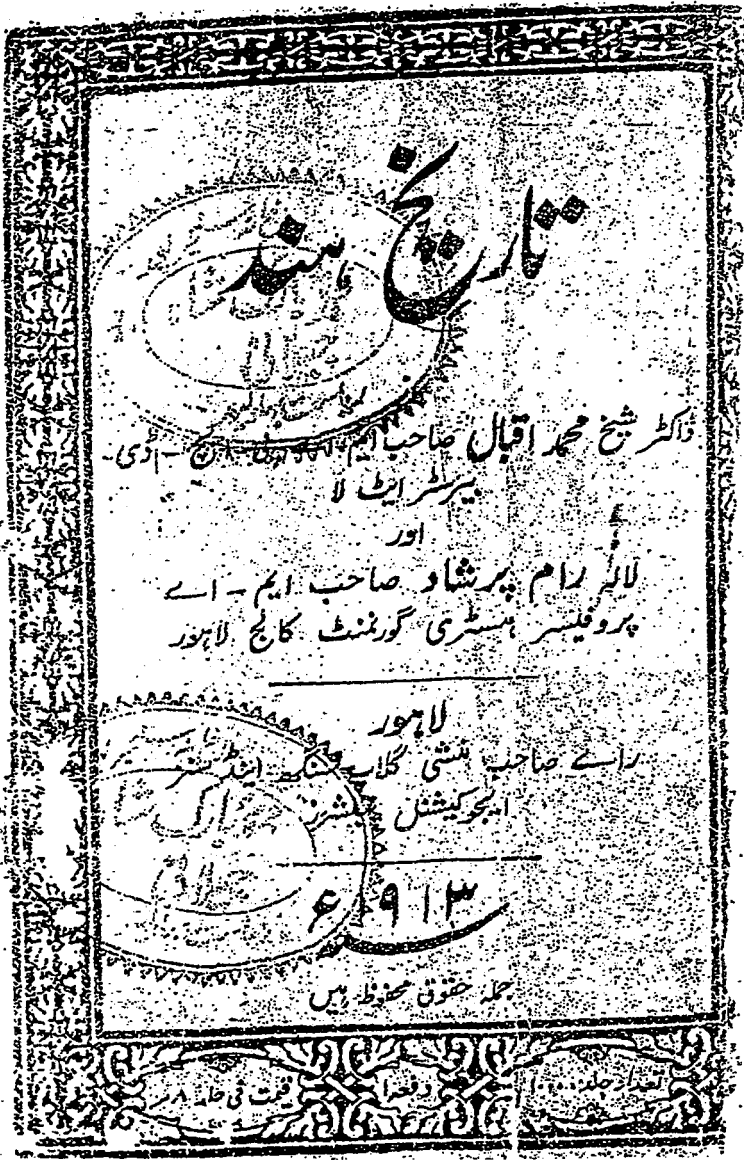 تاریخ ہند
ڈاکٹر شیخ محمد اقبال صاحب ایم - اے - پی - ایچ - ڈی -
بیرسٹر ایٹ لا
اور
لالہ رام پرشاد صاحب ایم - اے
پروفیسر ہسٹری گورنمنٹ کالج لاہور
لاہور
رائے صاحب منشی گلاب سنگھ اینڈ سنز
ایجوکیشنل پبلشرز
۱۹۱۳ء
جملہ حقوق محفوظ ہیں
تعداد جلد
دفعہ ۱
قیمت فی جلد ۸